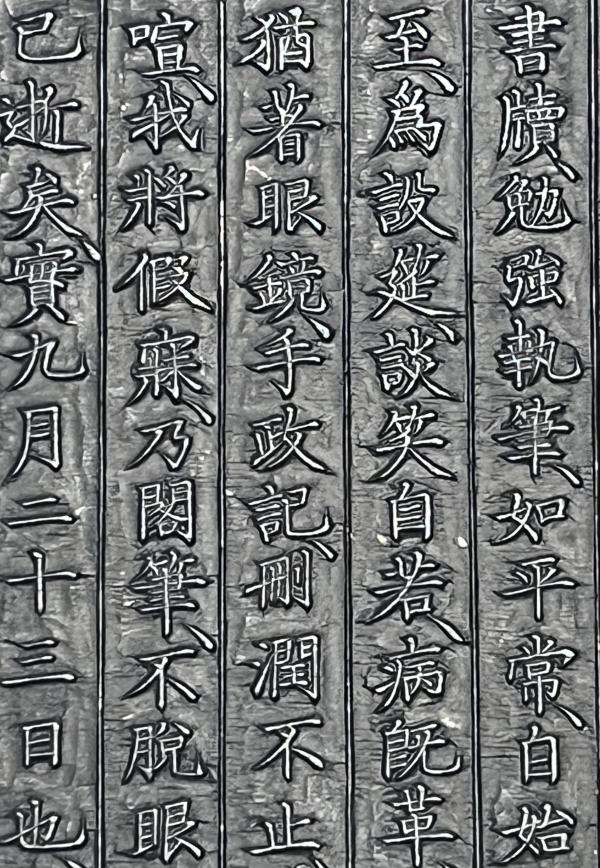 書牘、勉強執筆、如平常、自始
至、爲設筵、談笑自若、病既革
猶著眼鏡、手政記、刪潤不止、
喧、我將假寐、乃閣筆、不脫眼
已逝矣、實九月二十三日也、